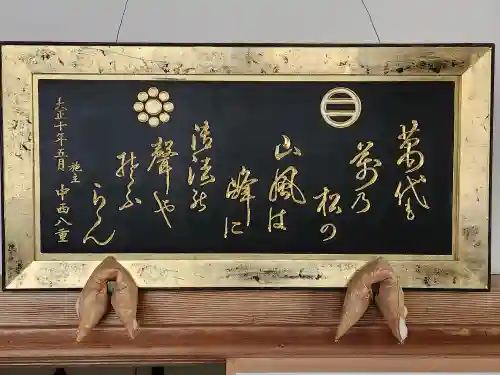 萬代も
前乃
松の
山風は
峰に
法の
聲や
そふ
らん
大正十年五月
施主
中西八重